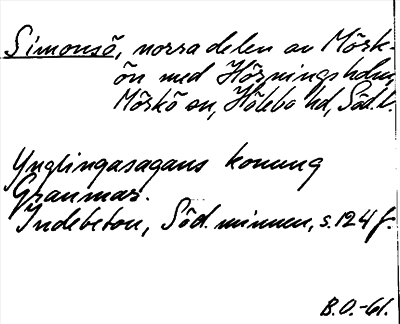 Simonsö, norra delen av Mörk-
ön med Hörningsholm,
Mörkö sn, Hölebo hd, Söd.l.
Ynglingasagans konung
Granmar.
Indebetou, Söd. minnen, s. 124 f.
B.O.-61.